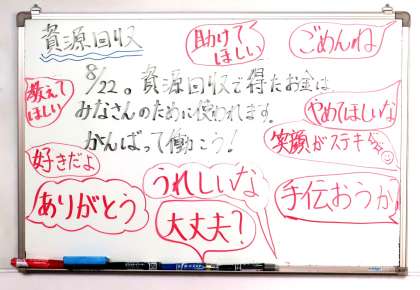 資源回収
助けて
ほしい
ごめんね
教えて
ほしい
8/22。資源回収で得たお金は
みなさんのために使われます。
がんばって働こう！
やめてほしいな
笑顔がステキ
好きだよ
ありがとう
うれしいな
大丈夫？
手伝おうか